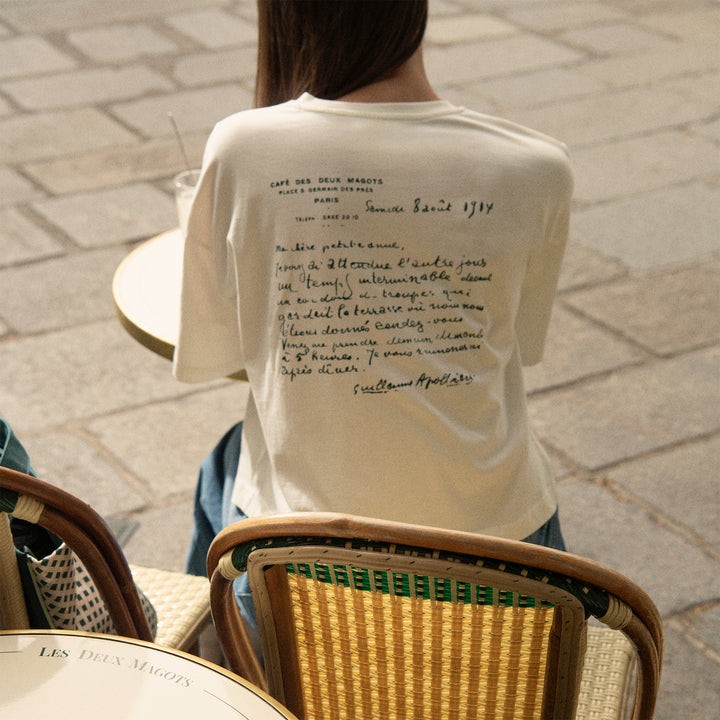 CAFÉ DES DEUX MAGOTS
PLACE S GERMAIN DES PRÉS
PARIS
TÉLÉPH : SAXE 20 10
Samedi 8 août 1914
Ma chère petite amie,
Je vous ai attendue l'autre jour
un temps interminable devant
un cordon de troupes qui
gardait la terrasse où nous nous
étions donnés rendez-vous
Venez me prendre demain dimanche
à 5 heures. Je vous ramènerai
après dîner.
Guillaume Apollinaire
LES DEUX MAGOTS